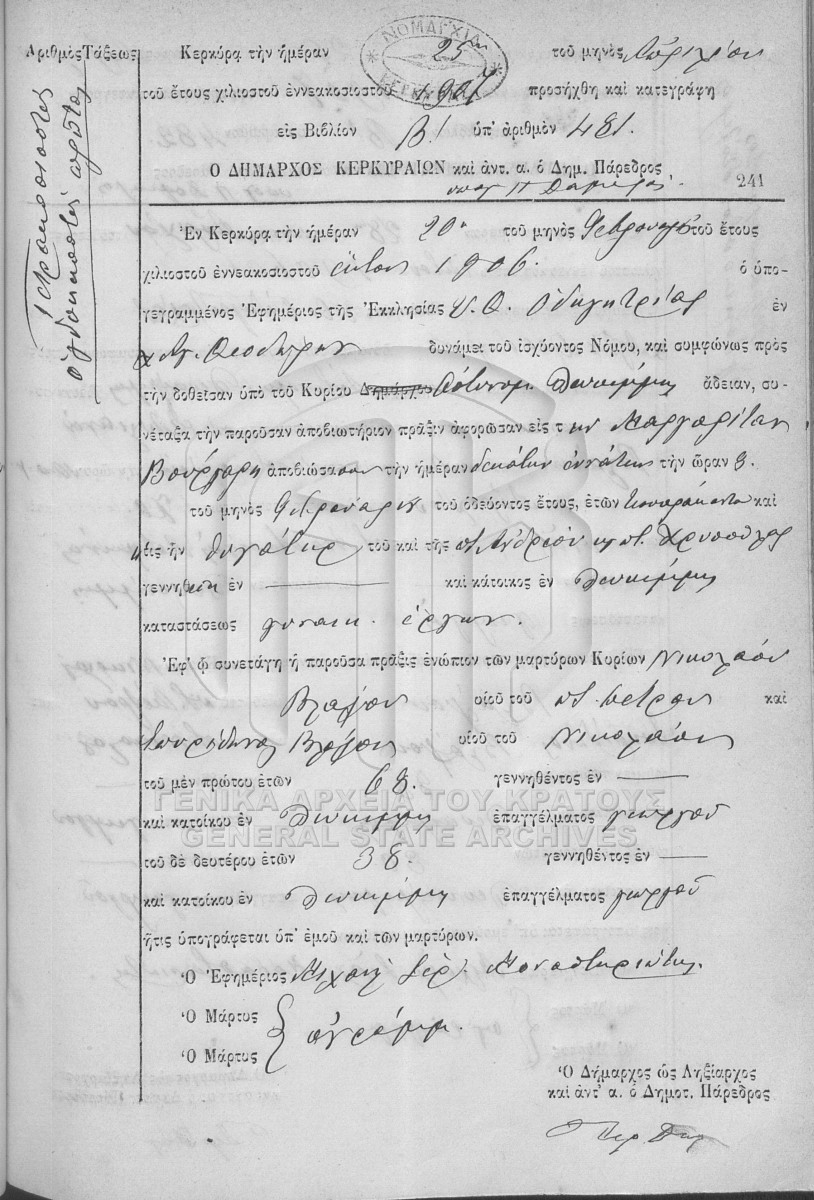 ΝΟΜΑΡΧΙΑ
Ἀριθμὸς Τάξεως
Κερκύρᾳ τὴν ἡμέραν 25 τοῦ μηνὸς Ἀπριλίου
τοῦ ἔτους χιλιοστοῦ ἐννεακοσιοστοῦ 1907 προσήχθη καὶ κατεγράφη
εἰς Βιβλίον Β! ὑπ' ἀριθμὸν 481.
Ὁ ΔΗΜΑΡΧΟΣ ΚΕΡΚΥΡΑΙΩΝ καὶ ἀντ. α. ὁ Δημ. Πάρεδρος
241
Τετρακοσιοστὸς
ὀγδοηκοστὸς πρῶτος
Ἐν Κερκύρᾳ τὴν ἡμέραν 20 τοῦ μηνὸς Φεβρουαρίου τοῦ ἔτους
χιλιοστοῦ ἐννεακοσιοστοῦ ἕκτου 1906. ὁ ὑπο-
γεγραμμένος Ἐφημέριος τῆς Ἐκκλησίας Υ. Θ. Ὁδηγητρίας ἐν
Ἁγ. Θεοδώρων δυνάμει τοῦ ἰσχύοντος Νόμου, καὶ συμφώνως πρὸς
τὴν δοθεῖσαν ὑπὸ τοῦ Κυρίου Δημάρχου Ἀστυνομ. Λευκίμμης ἄδειαν, συ-
νέταξα τὴν παροῦσαν ἀποβιωτήριον πρᾶξιν ἀφορῶσαν εἰς τὴν Μαργαρίταν
Βούργαρη ἀποβιώσασαν τὴν ἡμέραν δεκάτην ἐννάτην τὴν ὥραν 8.
τοῦ μηνὸς Φεβρουαρίου τοῦ ὁδεύοντος ἔτους, ἐτῶν τεσσαράκοντα καὶ
τις ἦν θυγάτηρ τοῦ καὶ τῆς Ἀνδρέου Χρυσούλας
γεννηθεῖσα ἐν — καὶ κάτοικος ἐν Λευκίμμη
καταστάσεως γυναικ. ἔργων.
Ἐφ' ᾧ συνετάγη ἡ παροῦσα πρᾶξις ἐνώπιον τῶν μαρτύρων Κυρίων Νικολάου
Βλάχου υἱοῦ τοῦ Πέτρου καὶ
Σπυρίδωνος Βλάχου υἱοῦ τοῦ Νικολάου
τοῦ μὲν πρώτου ἐτῶν 68. γεννηθέντος ἐν —
ΓΕΝΙΚΑ ΑΡΧΕΙΑ ΤΟΥ ΚΡΑΤΟΥΣ
καὶ κατοίκου ἐν Λευκίμμη ἐπαγγέλματος γεωργοῦ
GENERAL STATE ARCHIVES
τοῦ δὲ δευτέρου ἐτῶν 38. γεννηθέντος ἐν —
καὶ κατοίκου ἐν Λευκίμμη ἐπαγγέλματος γεωργοῦ
ἥτις ὑπογράφεται ὑπ' ἐμοῦ καὶ τῶν μαρτύρων.
Ὁ Ἐφημέριος Μιχαὴλ Ἱερ. Μοναστηριώτης.
Ὁ Μάρτυς
ἀγράμμ.
Ὁ Μάρτυς
Ὁ Δήμαρχος ὡς Ληξίαρχος
καὶ ἀντ' α. ὁ Δημοτ. Πάρεδρος